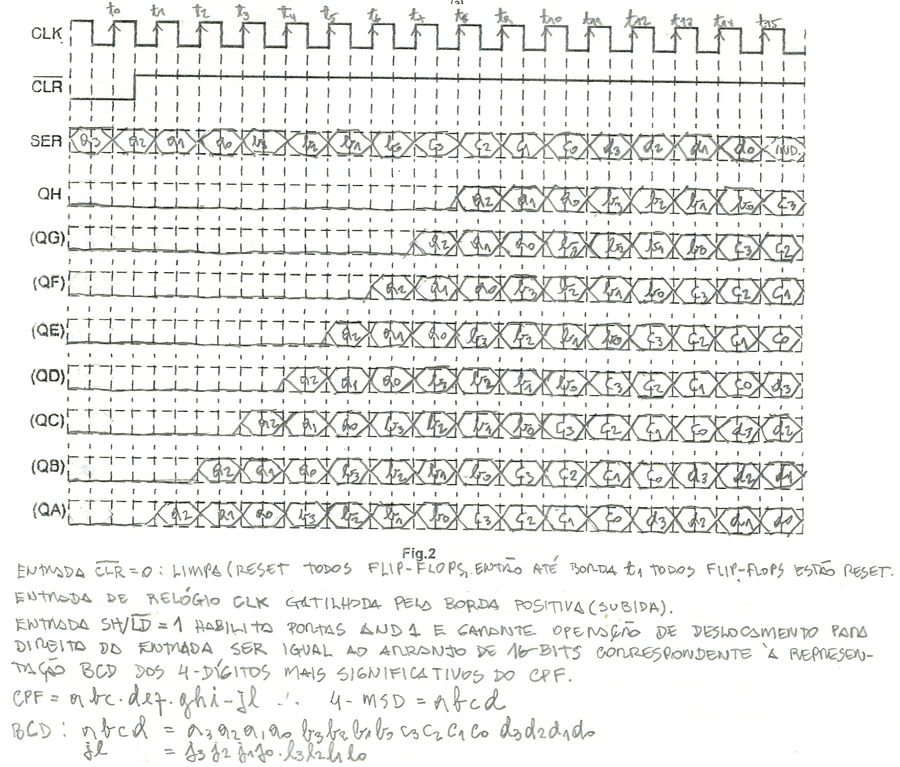 t0 t1 t2 t3 t4 t5 t6 t7 t8 t9 t10 t11 t12 t13 t14 t15
CLK
CLR
SER a3 a2 a1 a0 b3 b2 b1 b0 c3 c2 c1 c0 d3 d2 d1 d0 IND.
QH a2 a1 a0 b3 b2 b1 b0 c3
(QG) a2 a1 a0 b3 b2 b1 b0 c3 c2
(QF) a2 a1 a0 b3 b2 b1 b0 c3 c2 c1
(QE) a2 a1 a0 b3 b2 b1 b0 c3 c2 c1 c0
(QD) a2 a1 a0 b3 b2 b1 b0 c3 c2 c1 c0 d3
(QC) a2 a1 a0 b3 b2 b1 b0 c3 c2 c1 c0 d3 d2
(QB) a2 a1 a0 b3 b2 b1 b0 c3 c2 c1 c0 d3 d2 d1
(QA) a2 a1 a0 b3 b2 b1 b0 c3 c2 c1 c0 d3 d2 d1 d0
Fig.2
ENTRADA CLR = 0 : LIMPA (RESET TODOS FLIP-FLOPS, ENTÃO ATÉ BORDA t1 TODOS FLIP-FLOPS ESTÃO RESET.
ENTRADA DE RELÓGIO CLK GATILHADA PELA BORDA POSITIVA (SUBIDA).
ENTRADA SH/LD = 1 HABILITA PORTAS AND 1 E GARANTE OPERAÇÃO DE DESLOCAMENTO PARA
DIREITA DA ENTRADA SER IGUAL AO ARRANJO DE 16-BITS CORRESPONDENTE À REPRESEN-
TAÇÃO BCD DOS 4-DÍGITOS MAIS SIGNIFICATIVOS DO CPF.
CPF = abc.def.ghi-jl ∴ 4-MSD = abcd
BCD : abcd = a3a2a1a0 b3b2b1b0 c3c2c1c0 d3d2d1d0
jl = j3j2j1j0.l3l2l1l0